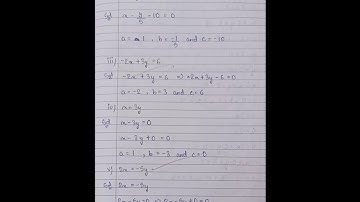 Sol x - y/5 - 10 = 0
a = 1 , b = -1/5 and c = -10
iii) -2x + 3y = 6
Sol -2x + 3y = 6 ⇒ -2x + 3y - 6 = 0
a = -2 , b = 3 and c = 6
iv) x = 3y
Sol x - 3y = 0
x - 3y + 0 = 0
a = 1 , b = -3 and c = 0
v) 2x = -5y
Sol 2x = -5y